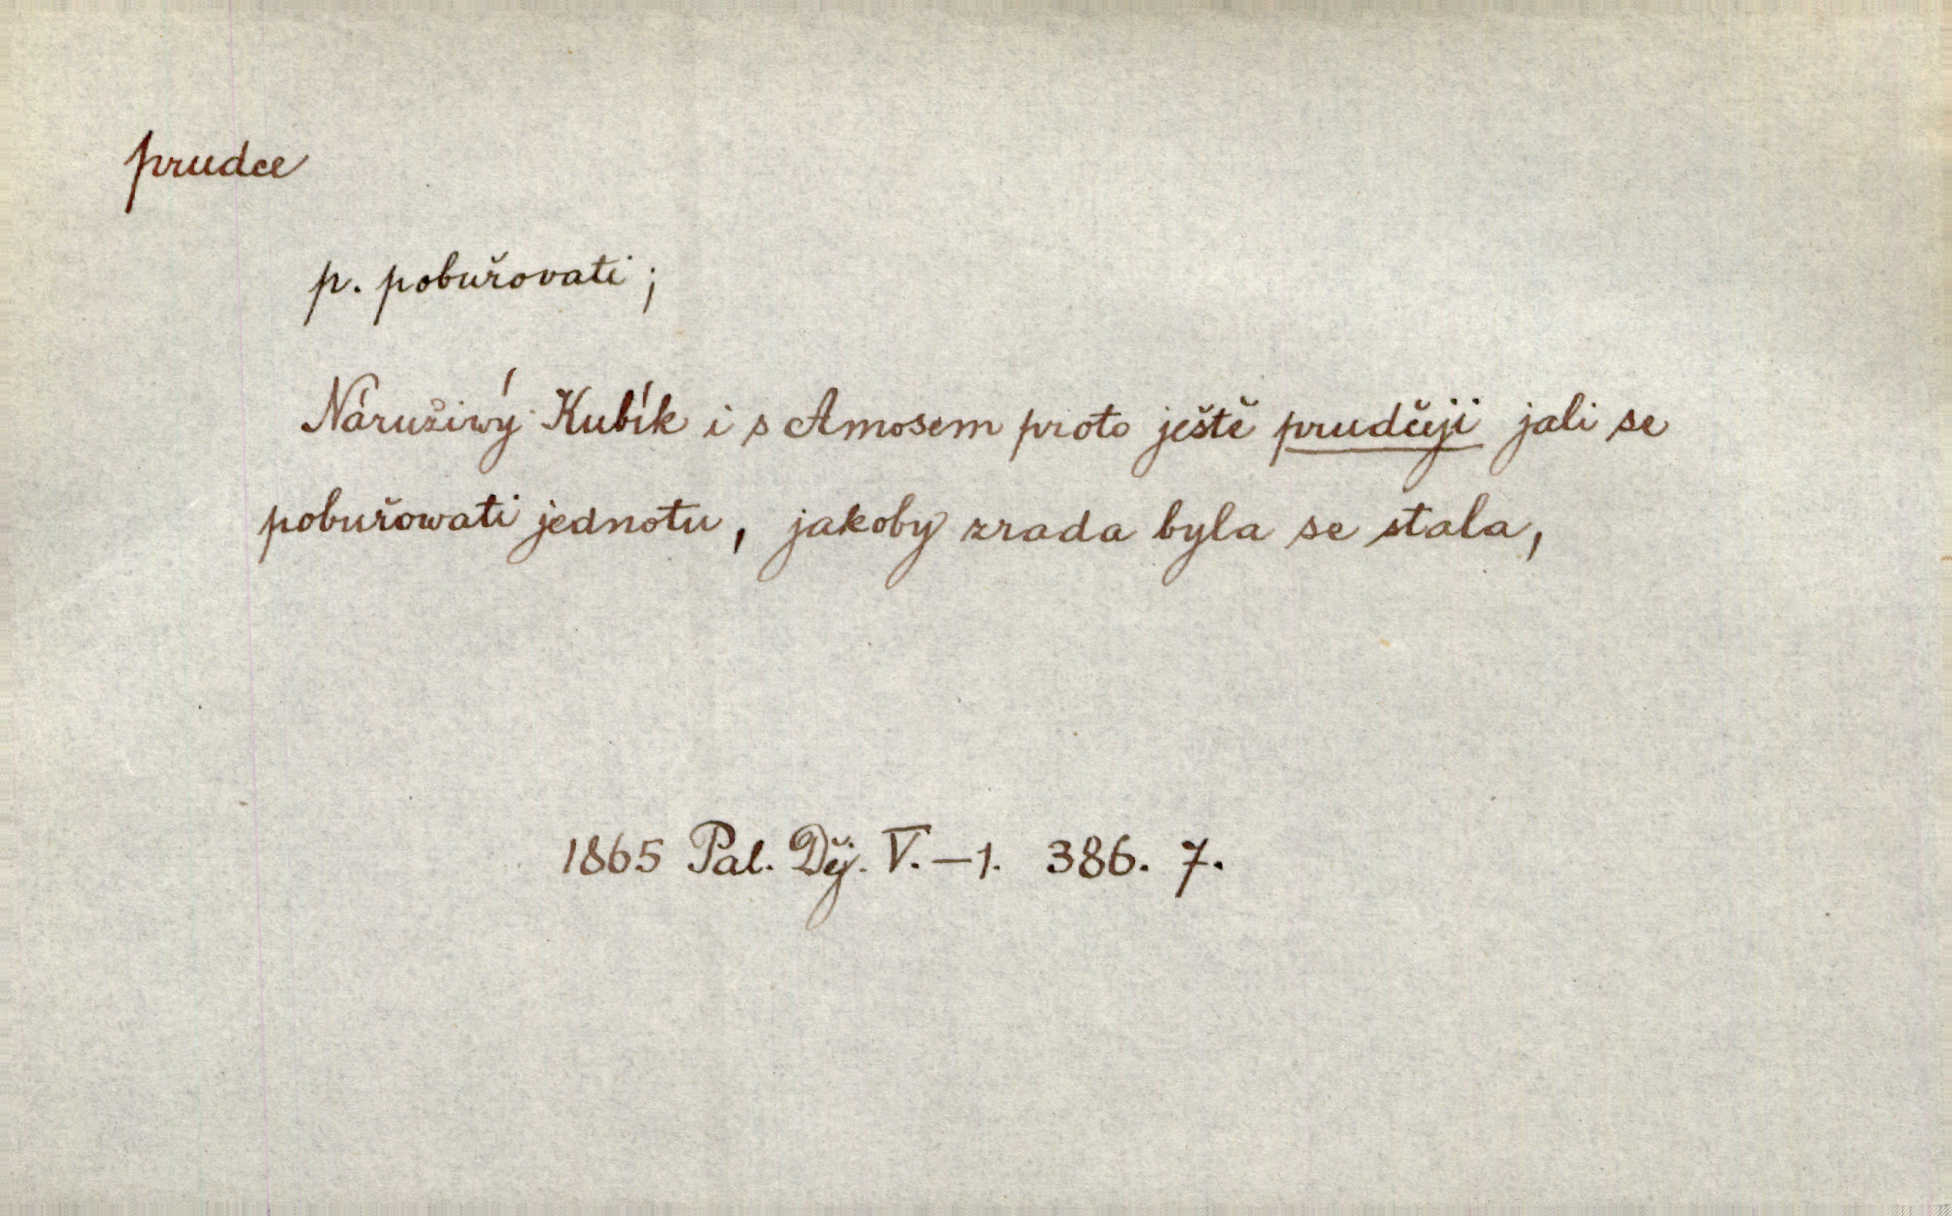 prudce
p. pobuřovati ;
Náruživý Kubík i s Amosem proto ještě prudčeji jali se
pobuřowati jednotu, jakoby zrada byla se stala,
1865 Pal. Děj. V.—1. 386. 7.